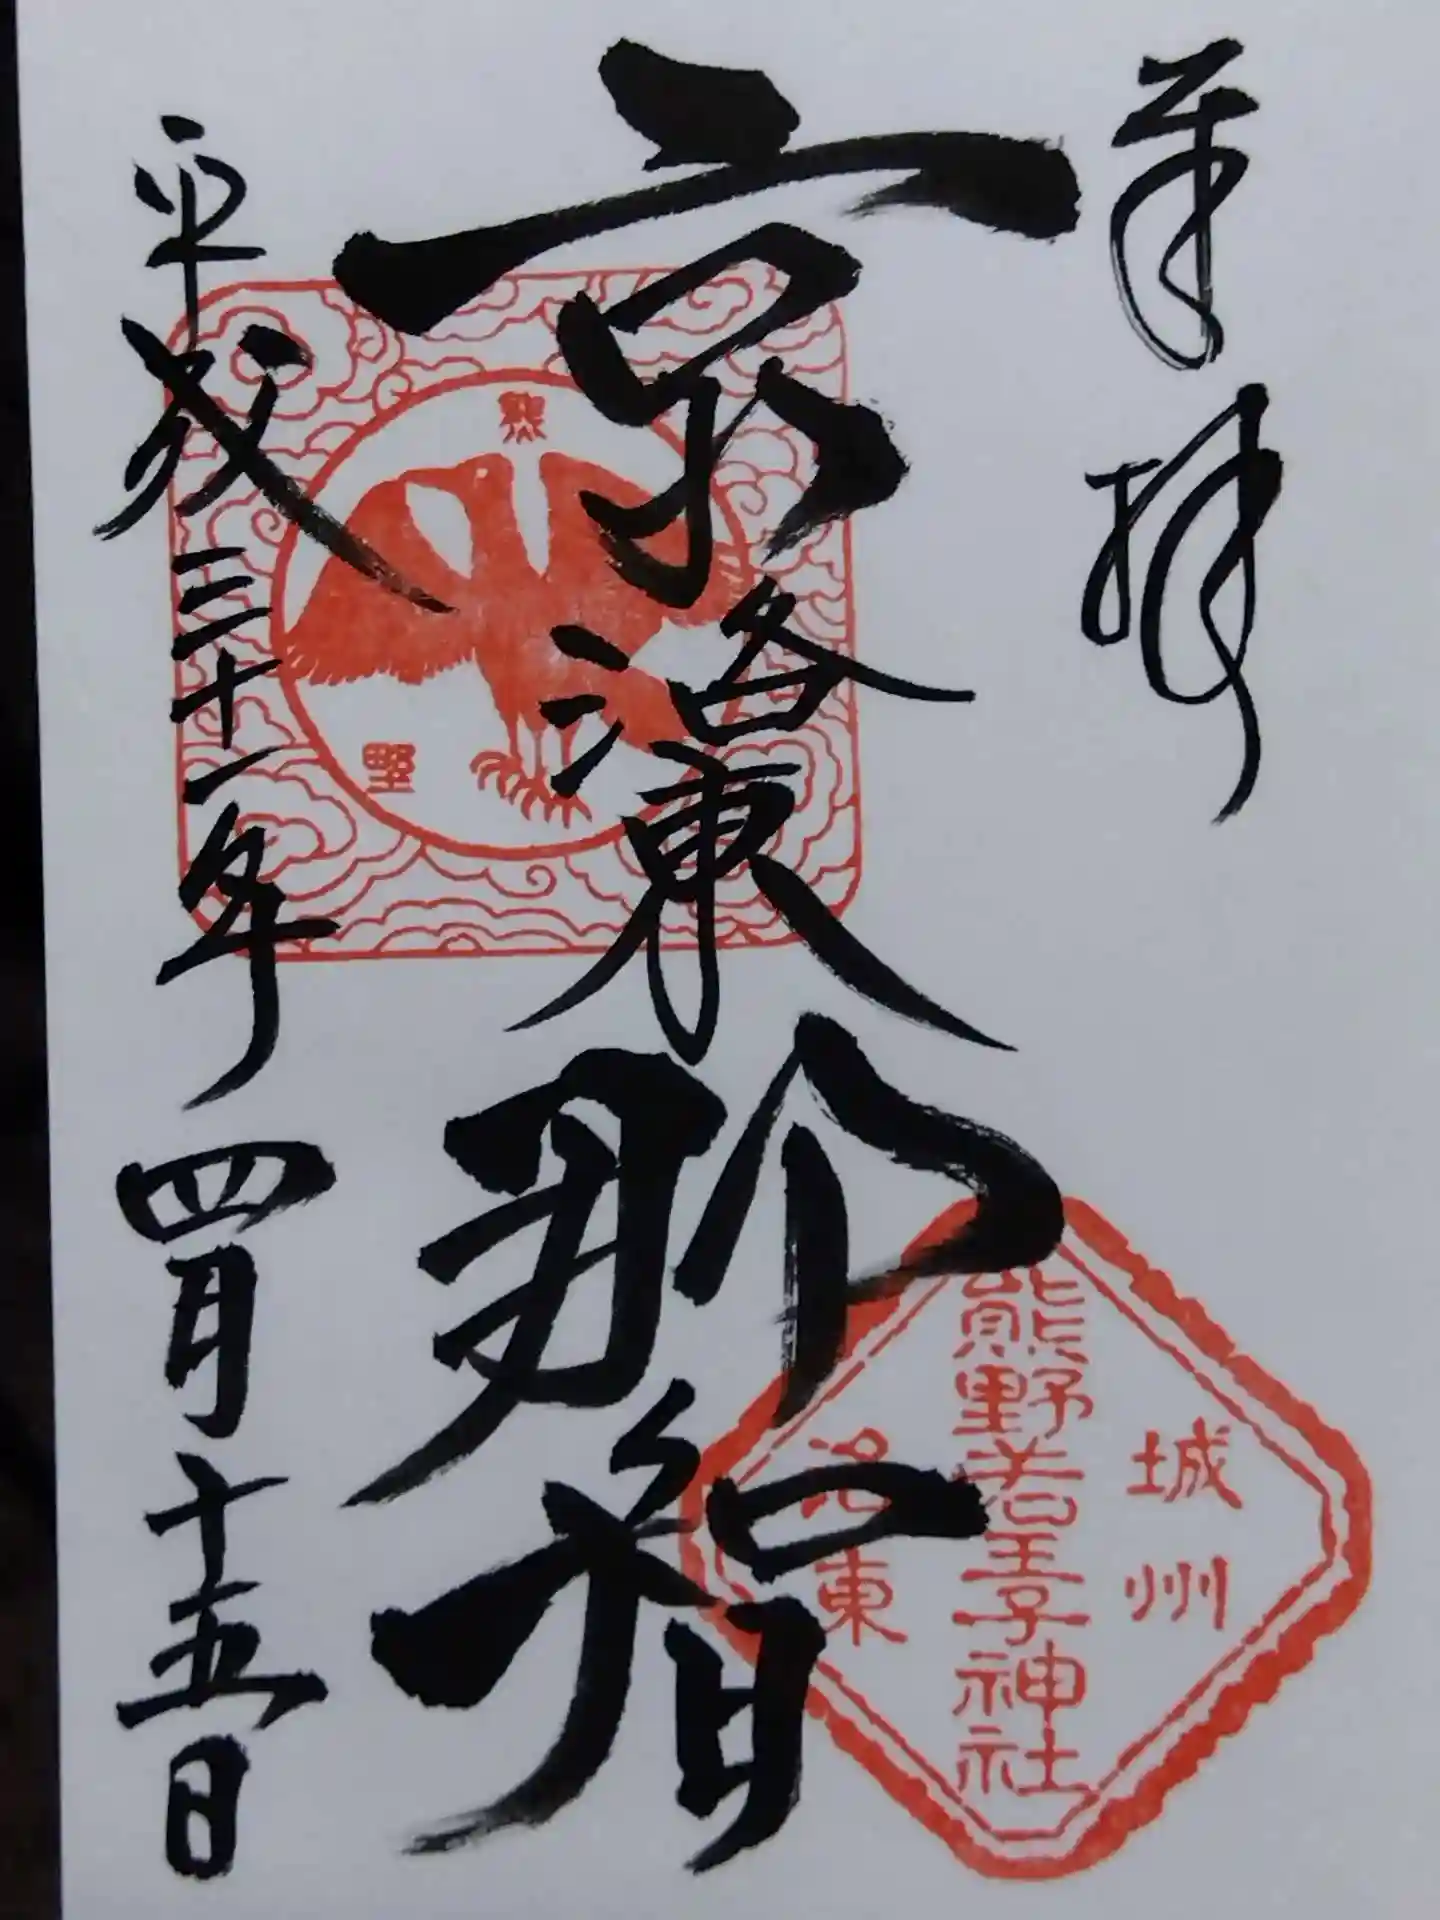 奉拝
京洛東那智
平成三十一年四月十五日
熊
野
城州
熊野若王子神社
洛東